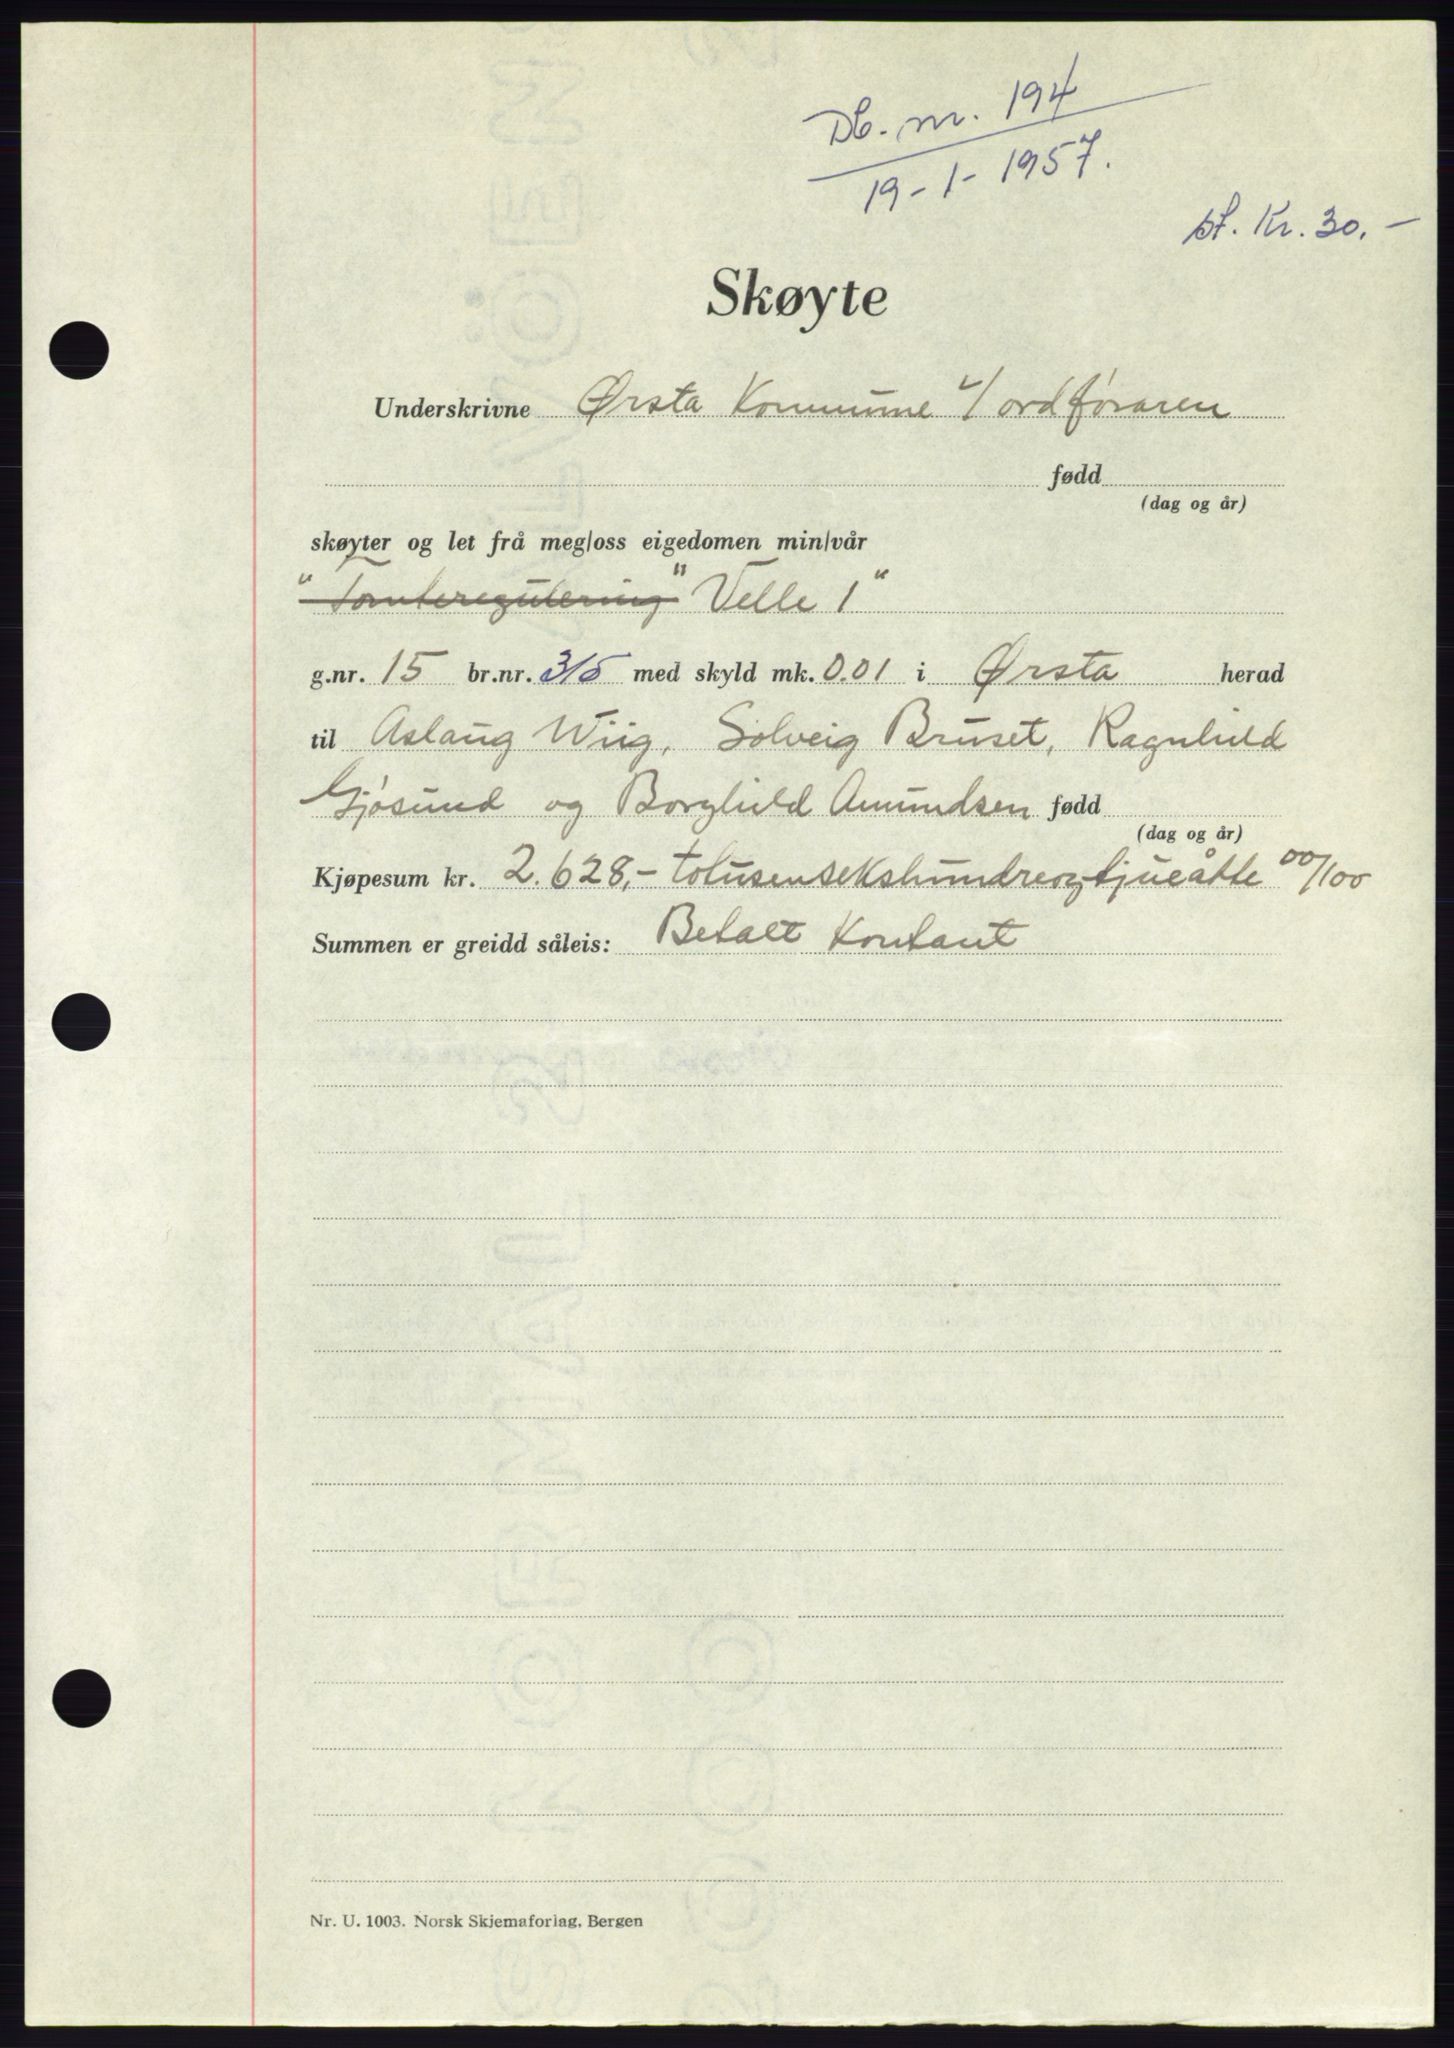 Db. nr. 194
19-1-1957.
St. Kr. 30.-
Skøyte
Underskrivne Ørsta Kommune v/ ordføraren
fødd
(dag og år)
skøyter og let frå meg/oss eigedomen min/vår
"Tomteregulering" Velle 1"
g.nr. 15 br.nr. 315 med skyld mk. 0.01 i Ørsta herad
til Aslaug Wiig, Solveig Bruset, Ragnhild
Gjøsund og Borghild Amundsen fødd
(dag og år)
Kjøpesum kr. 2.628,- totusensekshundreogtjueåtte 00/100
Summen er greidd såleis: Betalt Kontant
Nr. U. 1003. Norsk Skjemaforlag, Bergen